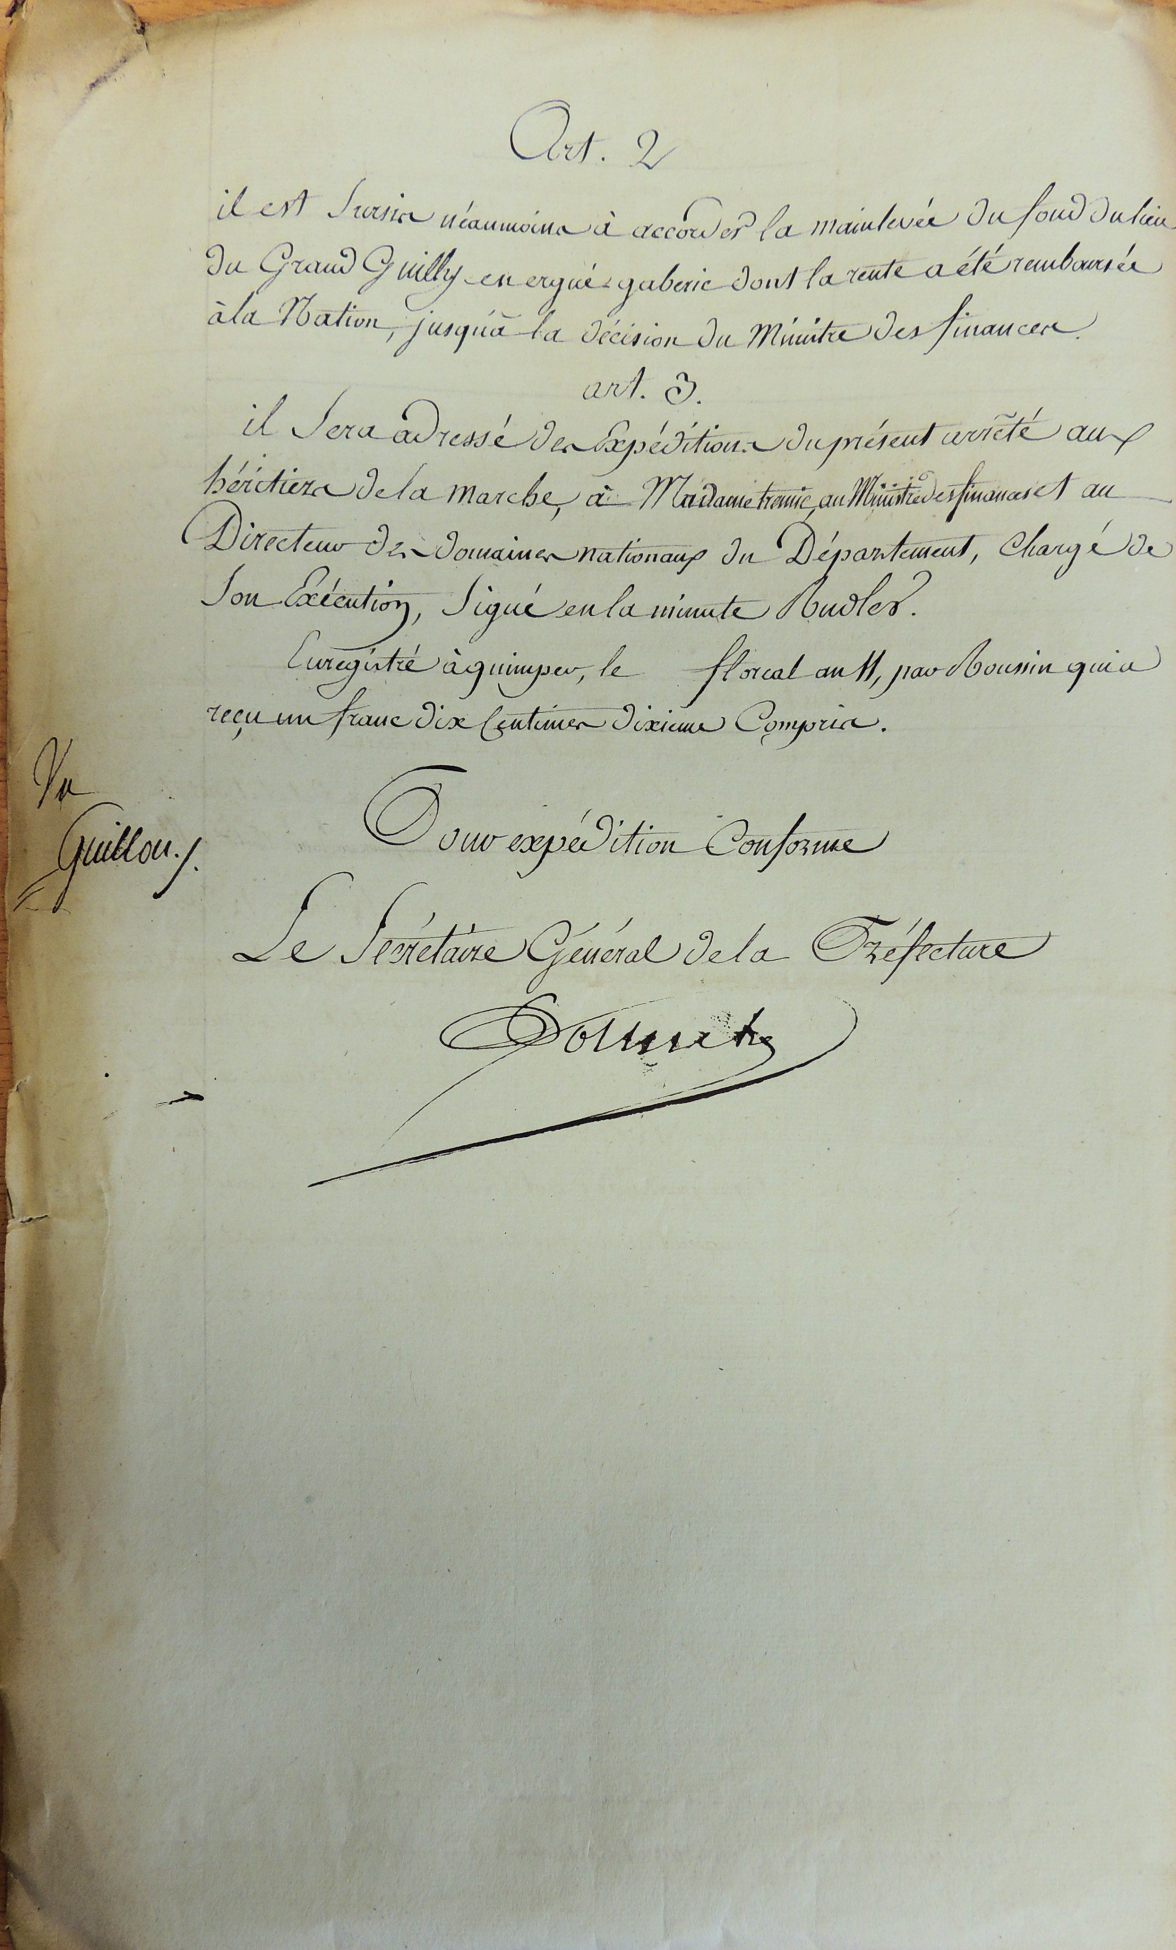 Art. 2
il est sursis néanmoins à accorder la mainlevée du fond du lieu
du Grand Guilly en ergué-gaberic dont la rente a été remboursée
à la Nation, jusqu'à la décision du Ministre des finances.
art. 3.
il sera adressé des Expéditions du présent arrêté aux
héritiers de la marche, à Madame au Ministre des finances et au
Directeur des domaines nationaux du Département, chargé de
son Exécution, signé en la minute Rudler.
Enregistré à quimper, le floreal an 11, par Roussin qui a
reçu un franc dix Centimes dixieme Compris.
Vu
Guillou
Pour expédition Conforme
Le Sécrétaire Général de la Préfecture